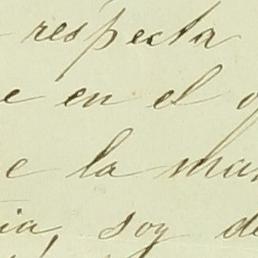 respecta
e en el
e la man
ia, soy de